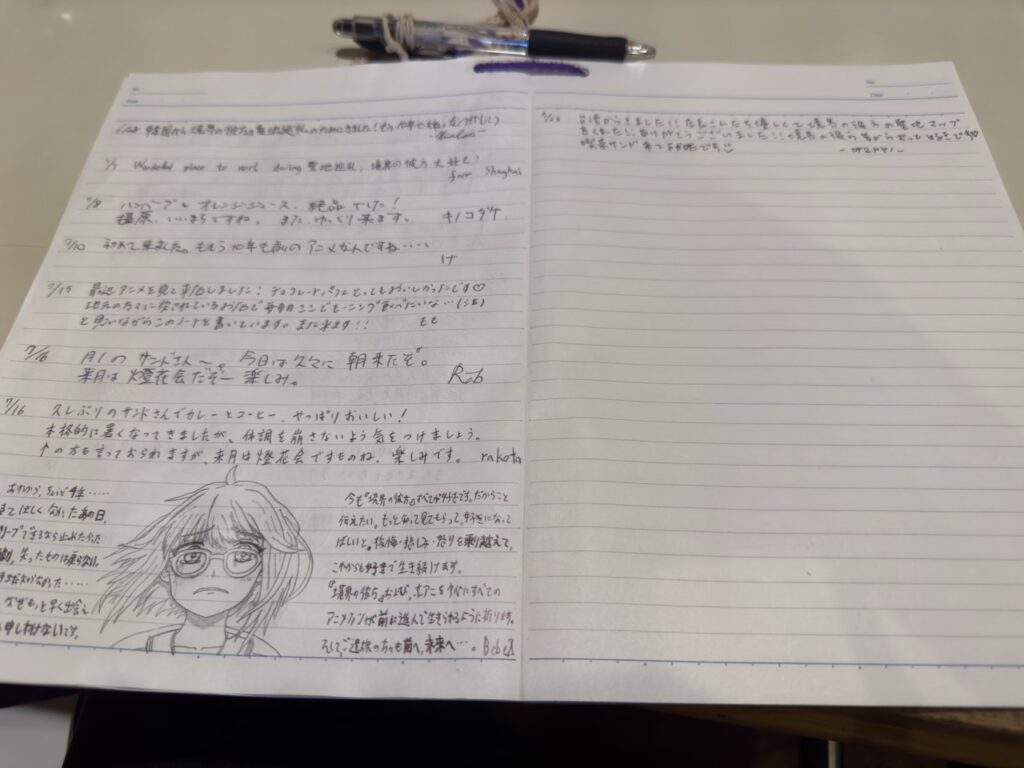 韓国から境界の彼方の聖地巡礼のためにきました!
7/7 Wonderful place to rest during 聖地巡礼、境界の彼方大好き!
from Shanghai
7/8 ハンバーグとオレンジジュース、絶品でした!
橿原、いいまちですね。また、ゆっくり来ます。 キノコダケ
7/10 初めて来ました。もう10年も前のアニメなんですね・・・・
け
7/15 最近アニメを見て来ました!チョコレートパフェとってもおいしかったです♡
地元の方々に愛されているお店で毎朝ここでモーニング食べたいな…(泣)
と思いながらこのノートを書いています。また来ます!! もも
7/16 月1のサンドさん〜。今日は久々に朝来たぞ。
来月は燈花会だぞー 楽しみ。 Rib
7/16 久しぶりのサンドさんでカレーとコーヒー、やっぱりおいしい!
本格的に暑くなってきましたが、体調を崩さないよう気をつけましょう。
↑の方も言っておられますが、来月は燈花会ですものね、楽しみです。 rakota
あれから、ちょうど4年・・・・・
ほしくなかったあの日、
失ったものは戻らない。
なぜもっと早く出会え
申しわけないです。
今も『境界の彼方』すべてが好きです。だからこそ
伝えたい。もっと知って見てもらって、好きになって
ほしいと。後悔・悲しみ・怒りを乗り越えて、
これからも好きで生き続けます。
『境界の彼方』および、京アニを中心にすべての
アニメファンが前に進んで生きられるように祈ります。
そして、ご遺族の方々も前へ、未来へ…。
No.
Date
No.
Date
台湾からきました!!店長さんたち優しくて境界の彼方の聖地マップ
をくれた!ありがとうございました!!境界の彼方
喫茶サンド来て